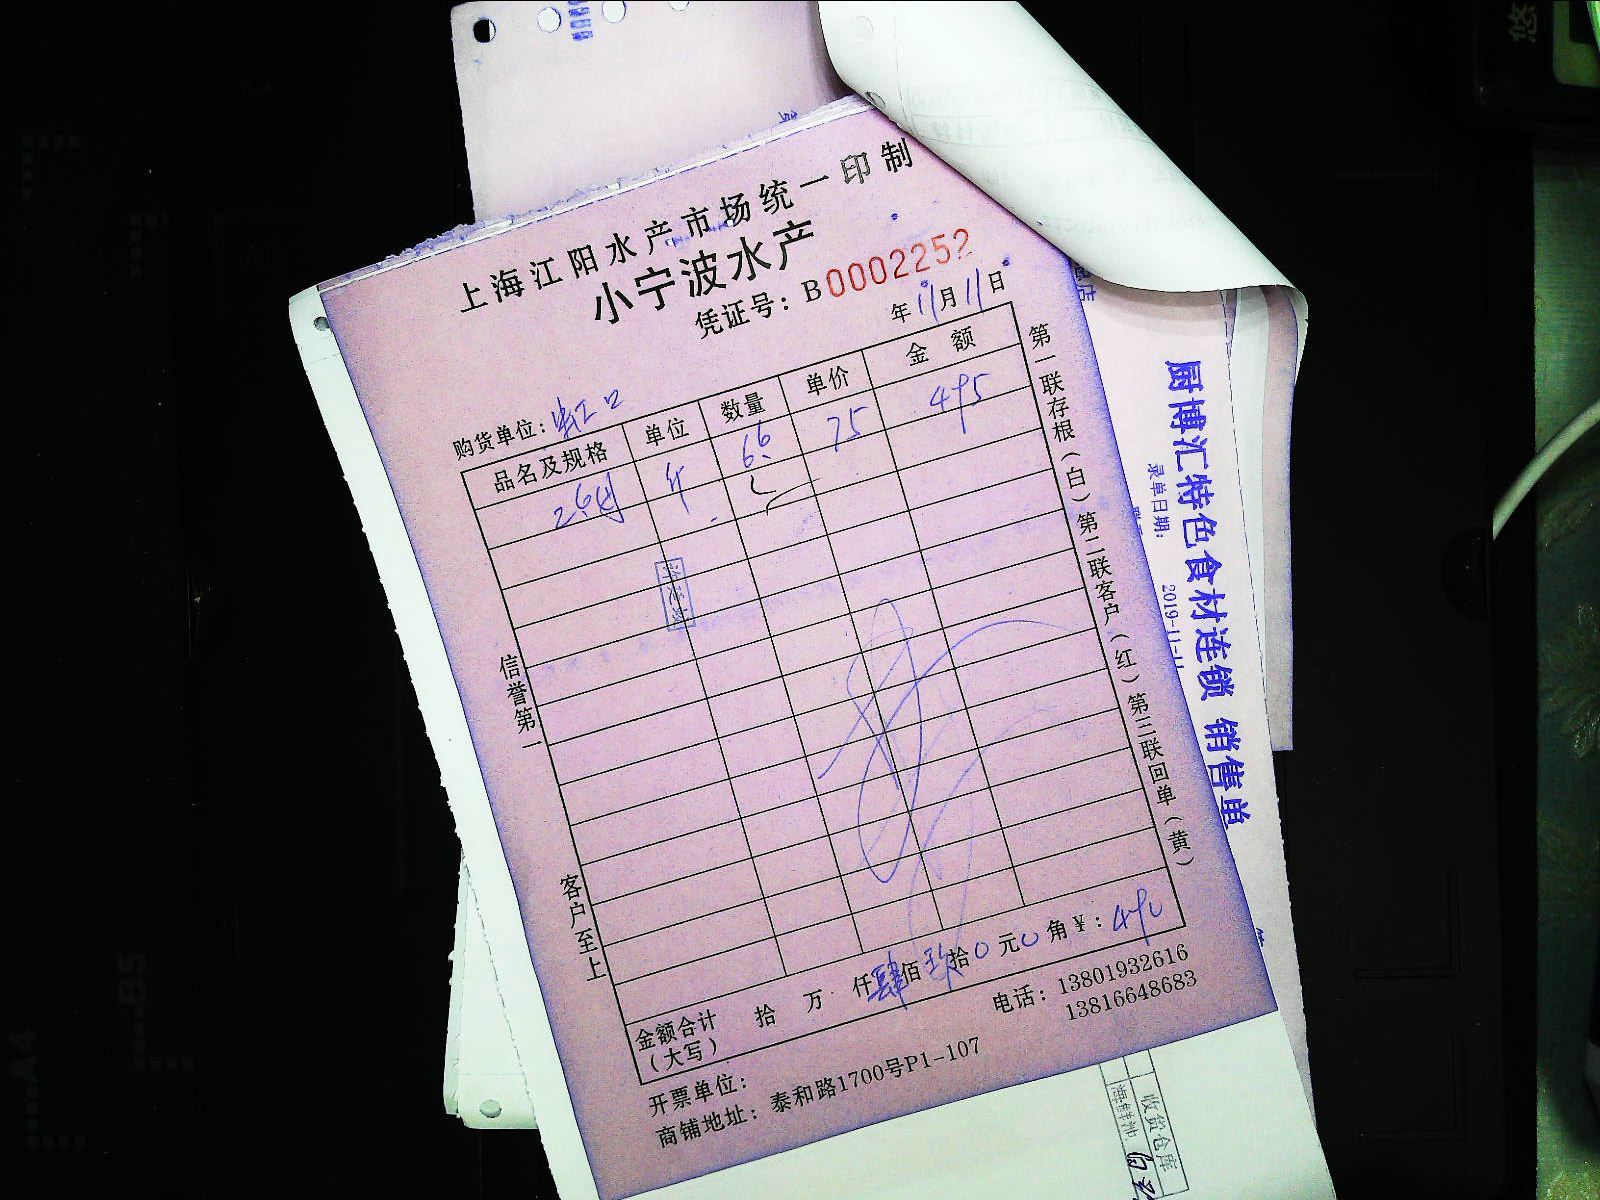 上海江阳水产市场统一印制
小宁波水产
凭证号：B0002252
年11月11日
购货单位：虹口
品名及规格 单位 数量 单价 金额
斤 6.6 75 495
信誉第一 客户至上
第一联存根（白）第二联客户（红）第三联回单（黄）
金额合计（大写） 拾 万 仟肆佰玖拾0元0角¥：490
开票单位：
电话：13801932616
13816648683
商铺地址：泰和路1700号P1-107
厨博汇特色食材连锁 销售单
录单日期：
2019-11-11
收货仓库
B5
A4